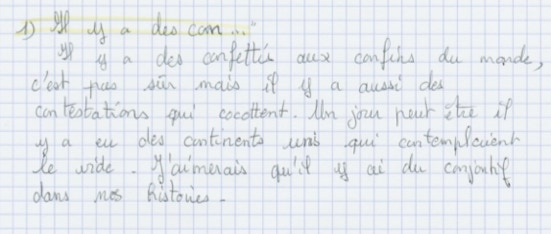 1) Il y a des con..."
Il y a des confettis aux confins du monde,
c'est pas sûr mais il y a aussi des
contestations qui cocottent. Un jour peut être il
y a eu des continents unis qui contemplaient
le vide. J'aimerais qu'il y ai du conjonctif
dans nos histoires.